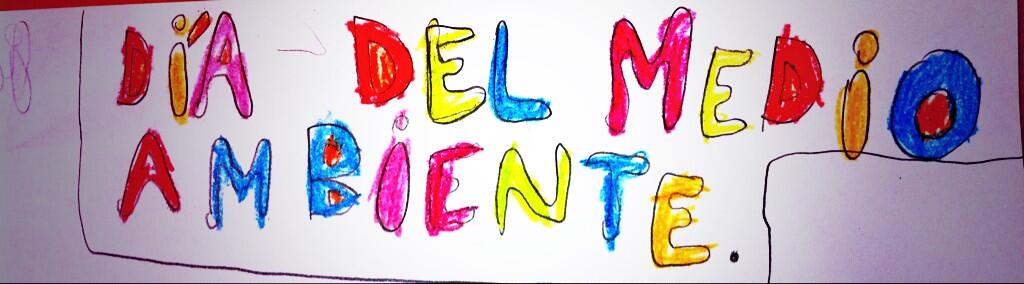 DíA DEL MEDiO
AMBiENTE.